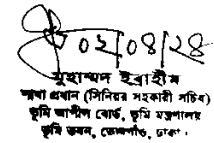 ০২/০৪/২৪
মুহাম্মদ ইব্রাহীম
শাখা প্রধান (সিনিয়র সহকারী সচিব)
ভূমি আপীল বোর্ড, ভূমি মন্ত্রণালয়
ভূমি ভবন, তেজগাঁও, ঢাকা।